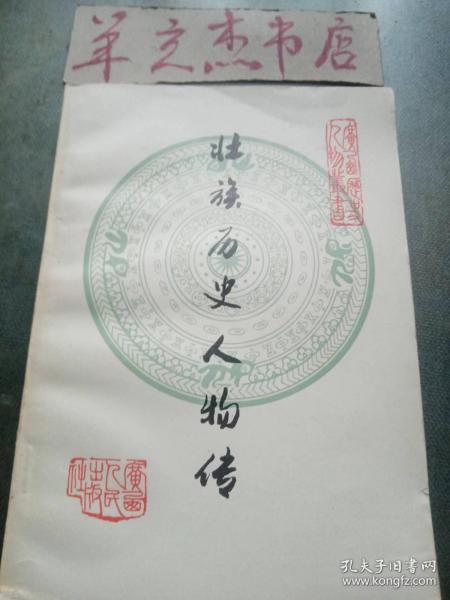 羊立杰书店
廣西歷史
人物叢書
壮族历史人物传
廣西
人民
出版
社
孔夫子旧书网
www.kongfz.com